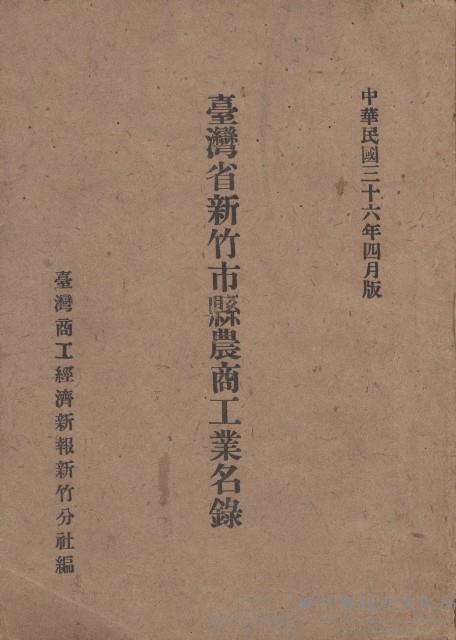 中華民國三十六年四月版
臺灣省新竹市縣農商工業名錄
臺灣商工經濟新報新竹分社編